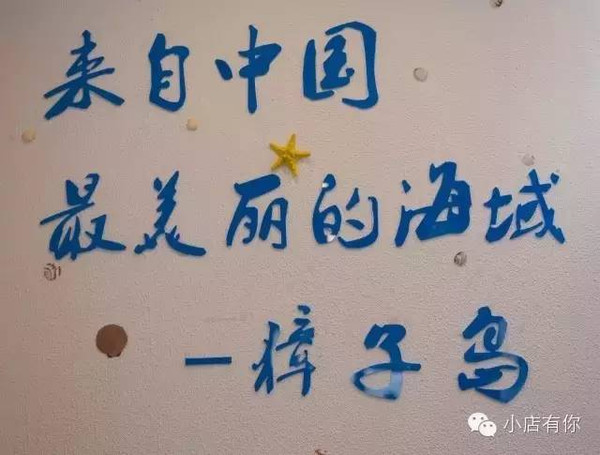 来自中国
最美丽的海域
—獐子岛
小店有你